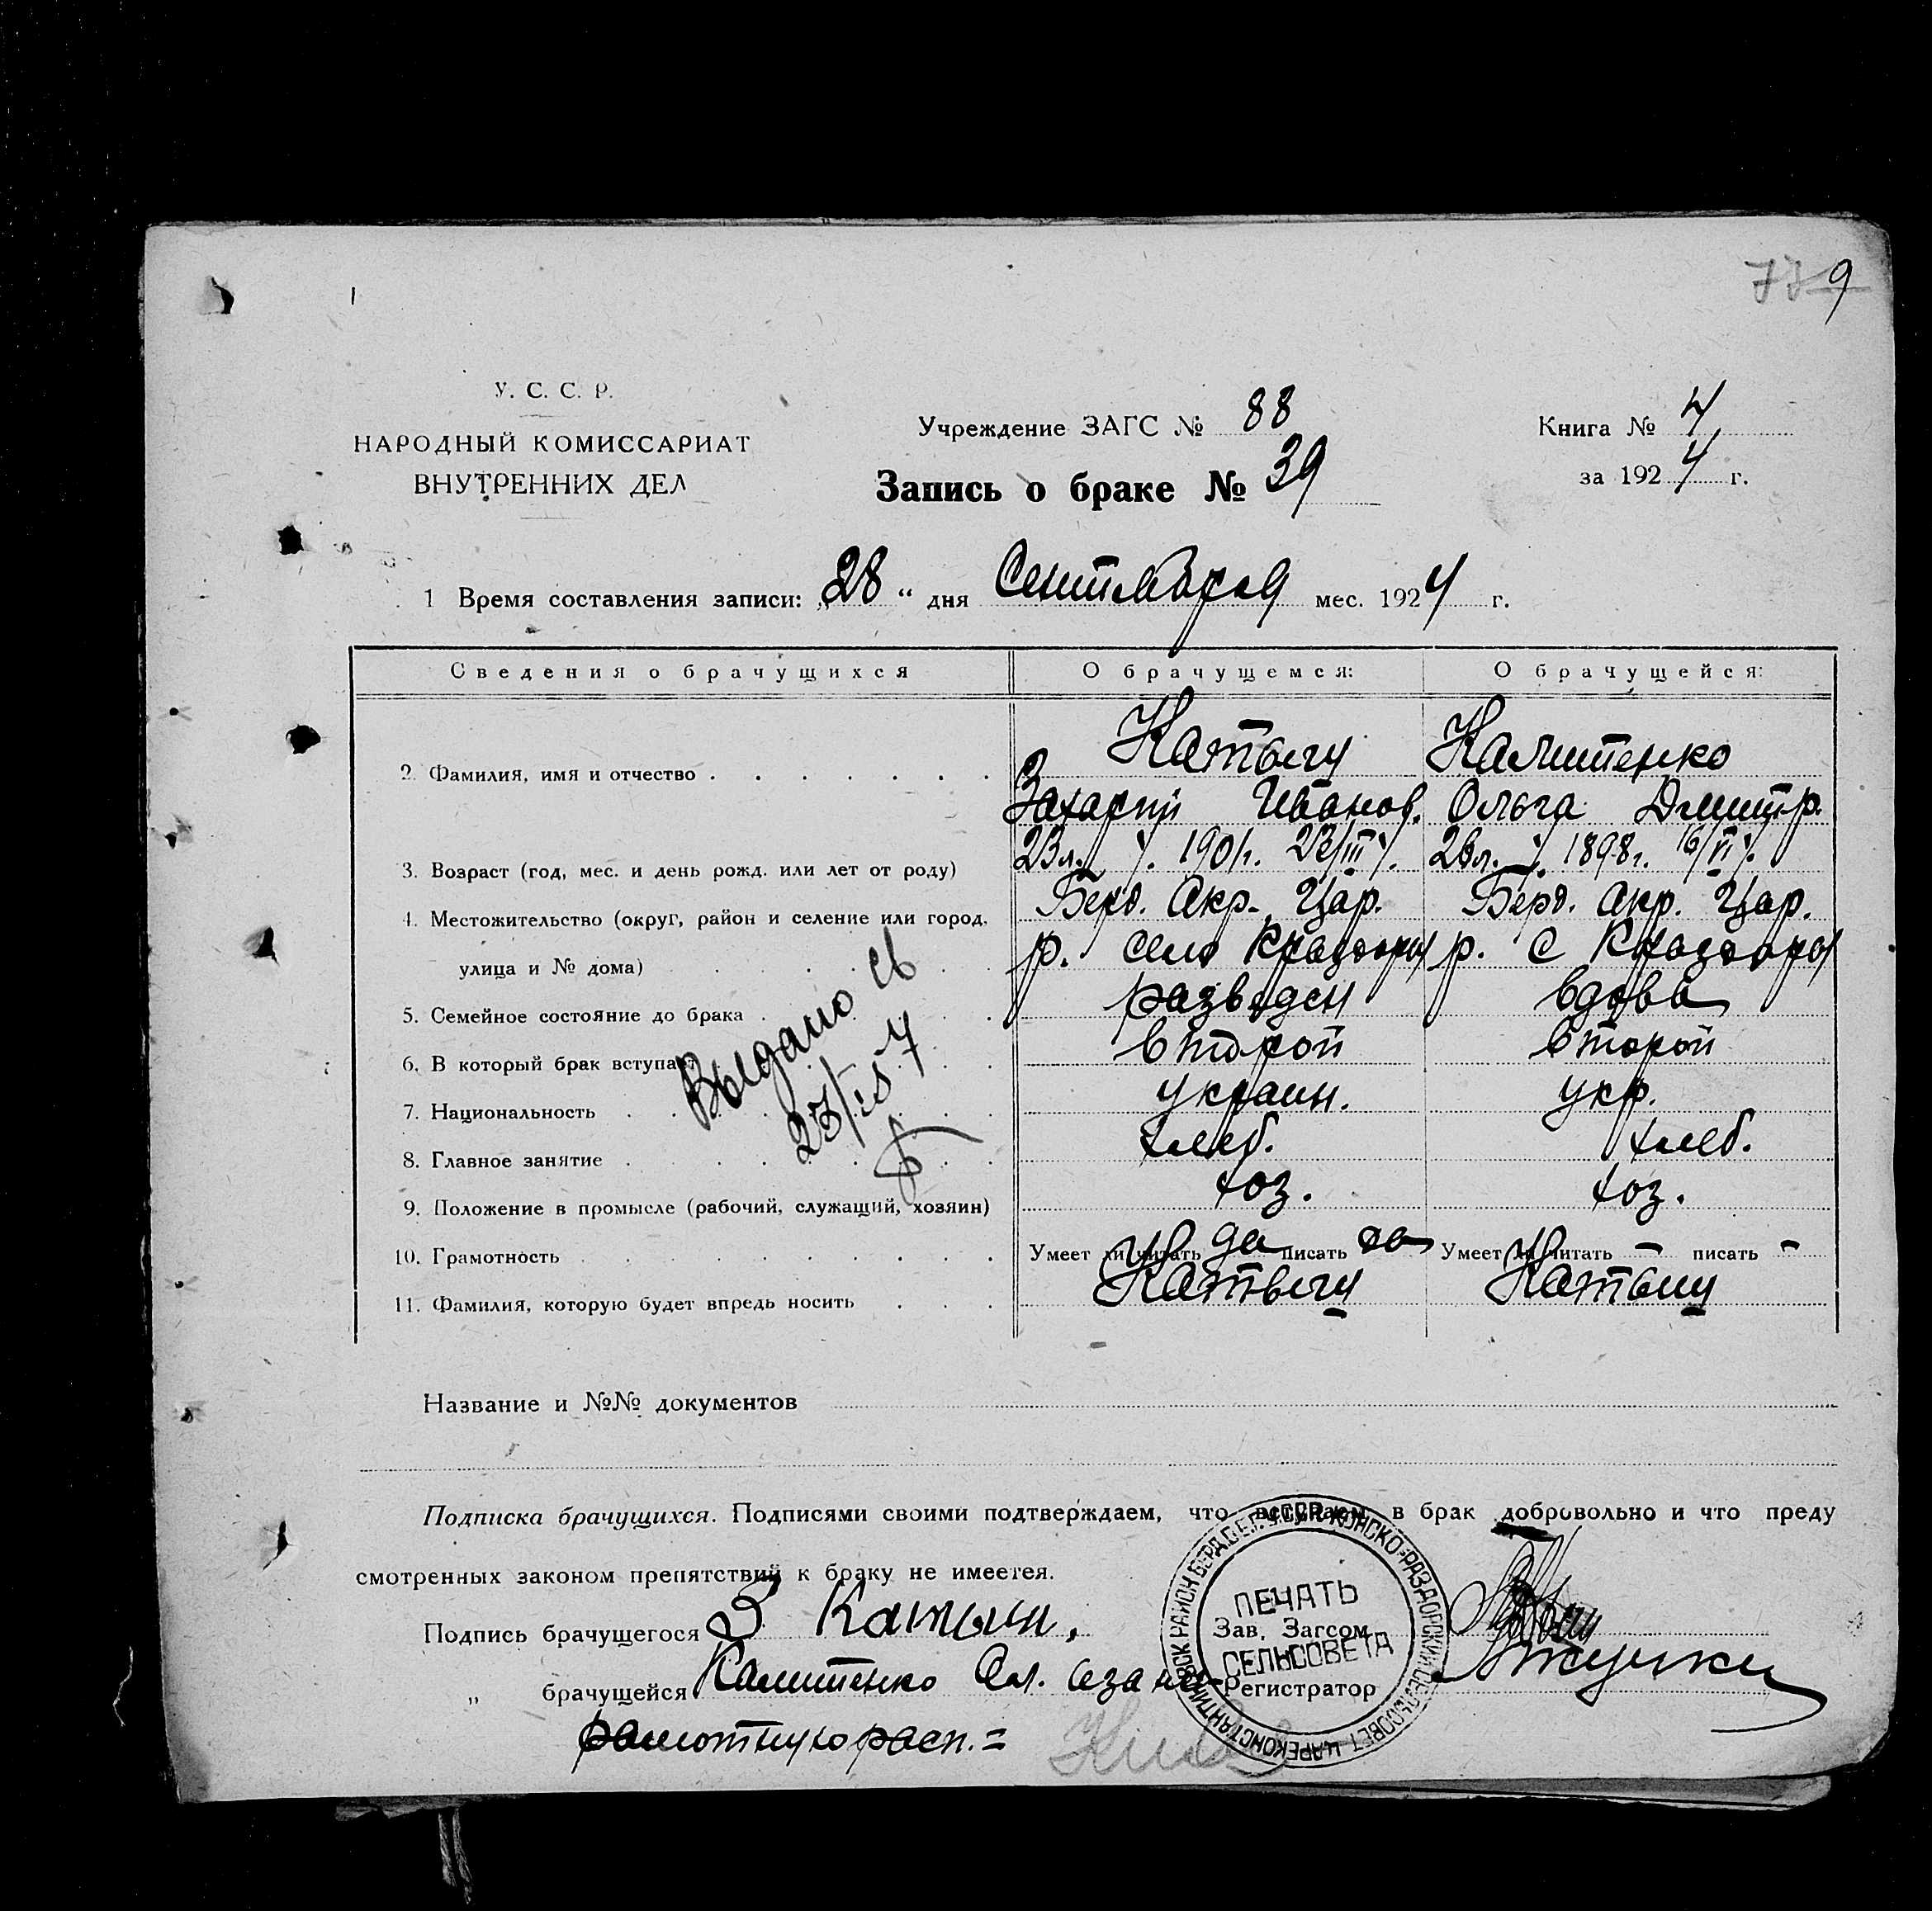 9
У. С. С. Р.
НАРОДНЫЙ КОМИССАРИАТ
ВНУТРЕННИХ ДЕЛ
Учреждение ЗАГС № 88
Книга № 4
Запись о браке № 39
за 1924 г.
1 Время составления записи: „28“ дня Сентября мес. 1924 г.
Сведения о брачущихся О брачущемся: О брачущейся:
2. Фамилия, имя и отчество Калитенко
Захарий Иванов. Ольга Дмитр.
3. Возраст (год, мес. и день рожд. или лет от роду) 23 л. 1901 г. 26 л. 1898 г. 16/VI
4. Местожительство (округ, район и селение или город, Берд. Окр. Цар. Берд. Окр. Цар.
улица и № дома) р. село Краздоры р. с Краздоры
5. Семейное состояние до брака разведен вдова
6. В который брак вступает второй второй
7. Национальность украин. укр.
8. Главное занятие хлеб. хлеб.
9. Положение в промысле (рабочий, служащий, хозяин) хоз. хоз.
10. Грамотность Умеет ли читать да писать да Умеет ли читать – писать –
11. Фамилия, которую будет впредь носить
Выдано св
23/
Название и №№ документов
Подписка брачущихся. Подписями своими подтверждаем, что вступаем в брак добровольно и что преду
смотренных законом препятствий к браку не имеется.
Подпись брачущегося З
„ брачущейся Калитенко Ол. а за не-
грамотную расп. =
Зав. Загсом
Регистратор
ПЕЧАТЬ
СЕЛЬСОВЕТА
У.С.С.Р. КОНСКО-РАЗДОРСКИЙ СЕЛЬСОВЕТ ЦАРЕКОНСТАНТИНОВСК РАЙОН БЕРД.